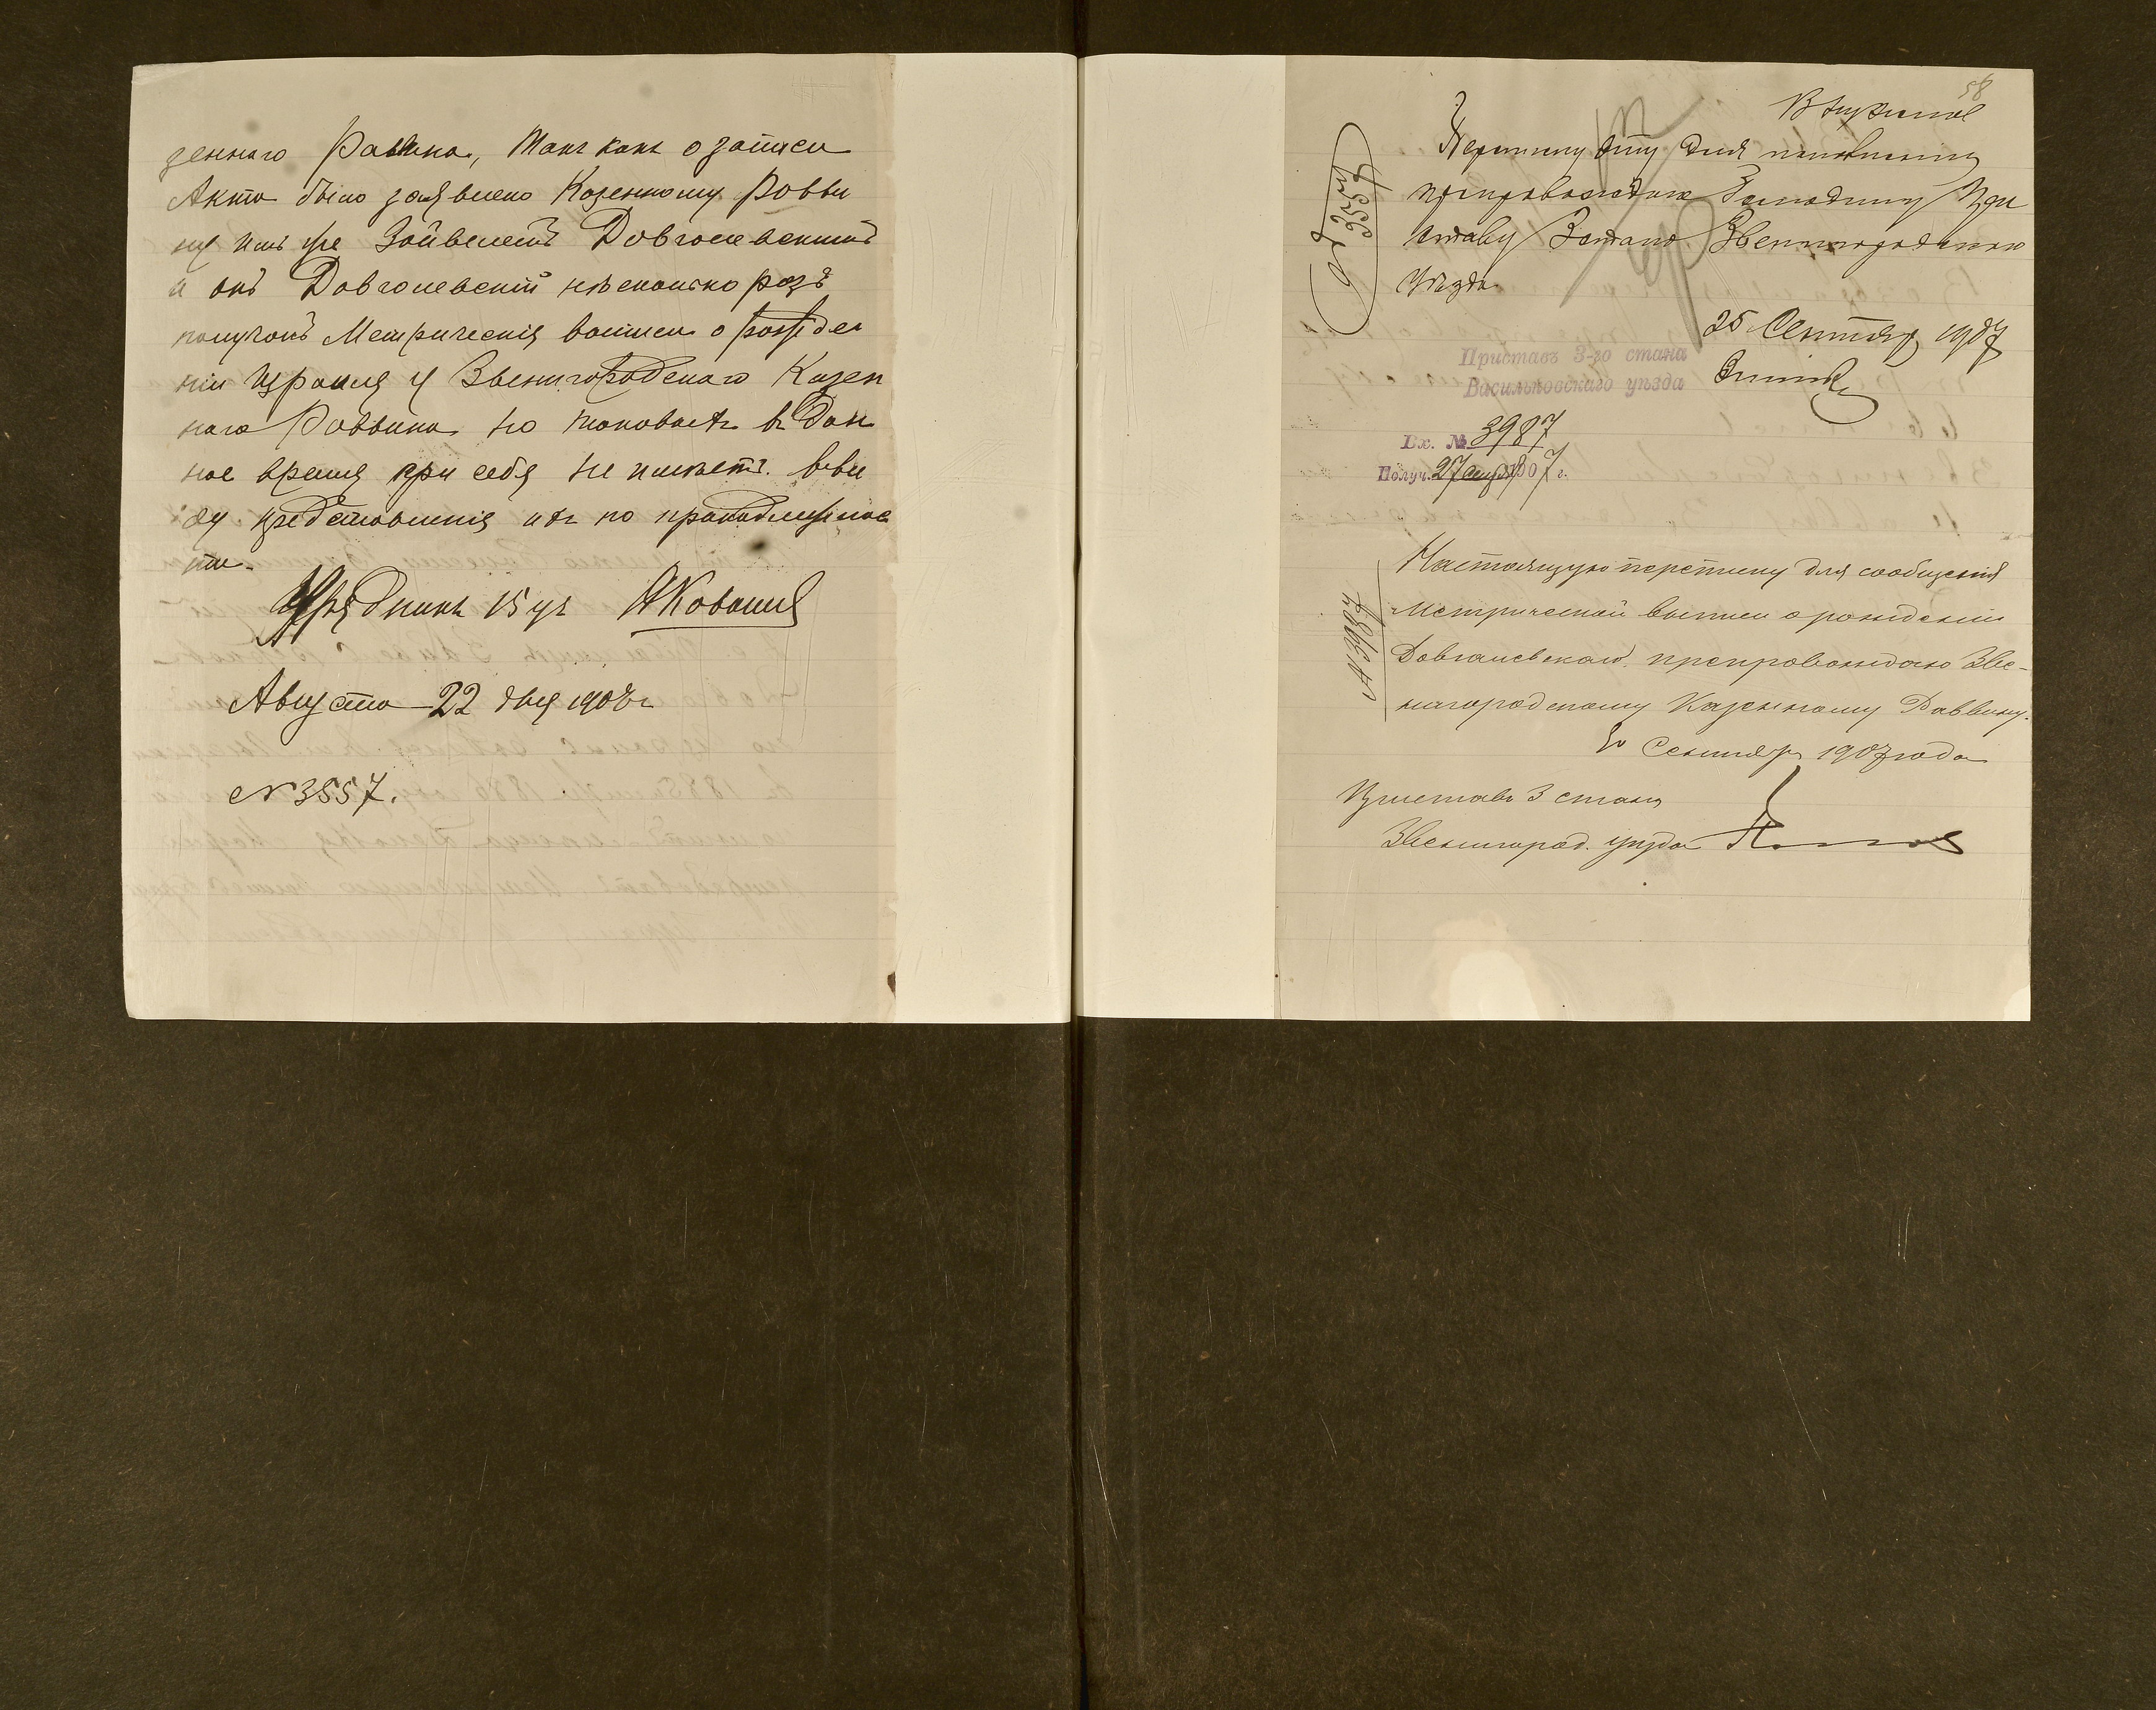 зеннаго Раввина, такъ какъ о записи
Акта было заявлено Казенному Равви
ну имъ же Зайвелемъ Довгалевскимъ
и онъ Довгалевскій нѣсколько разъ
получалъ Метрическія выписи о рожде
ніи Израиля у Звенигородскаго Казен
наго Раввина но таковыхъ въ дан
ное время при себя не имѣетъ. въ ви
ду представленія ихъ по принадлежнос
ти.
Урядникъ 15 уч А Коваль
Августа 22 дня 1907 г
№ 3557.
58
Переписку эту для
препровождаю Господину При
ставу 3 стана Звенигородскаго
Уѣзда
25 Сентября 1907
Приставъ 3-го стана
Васильковскаго уѣзда
Вх. № 3987
Получ. 27 1907 г.
Настоящую переписку для сообщенія
метрической выписи о рожденіи
Довгалевскаго препровождаю Зве-
нигородскому Казенному Раввину.
Сентября 1907 года
Приставъ 3 стана
Звенигород. уѣзда